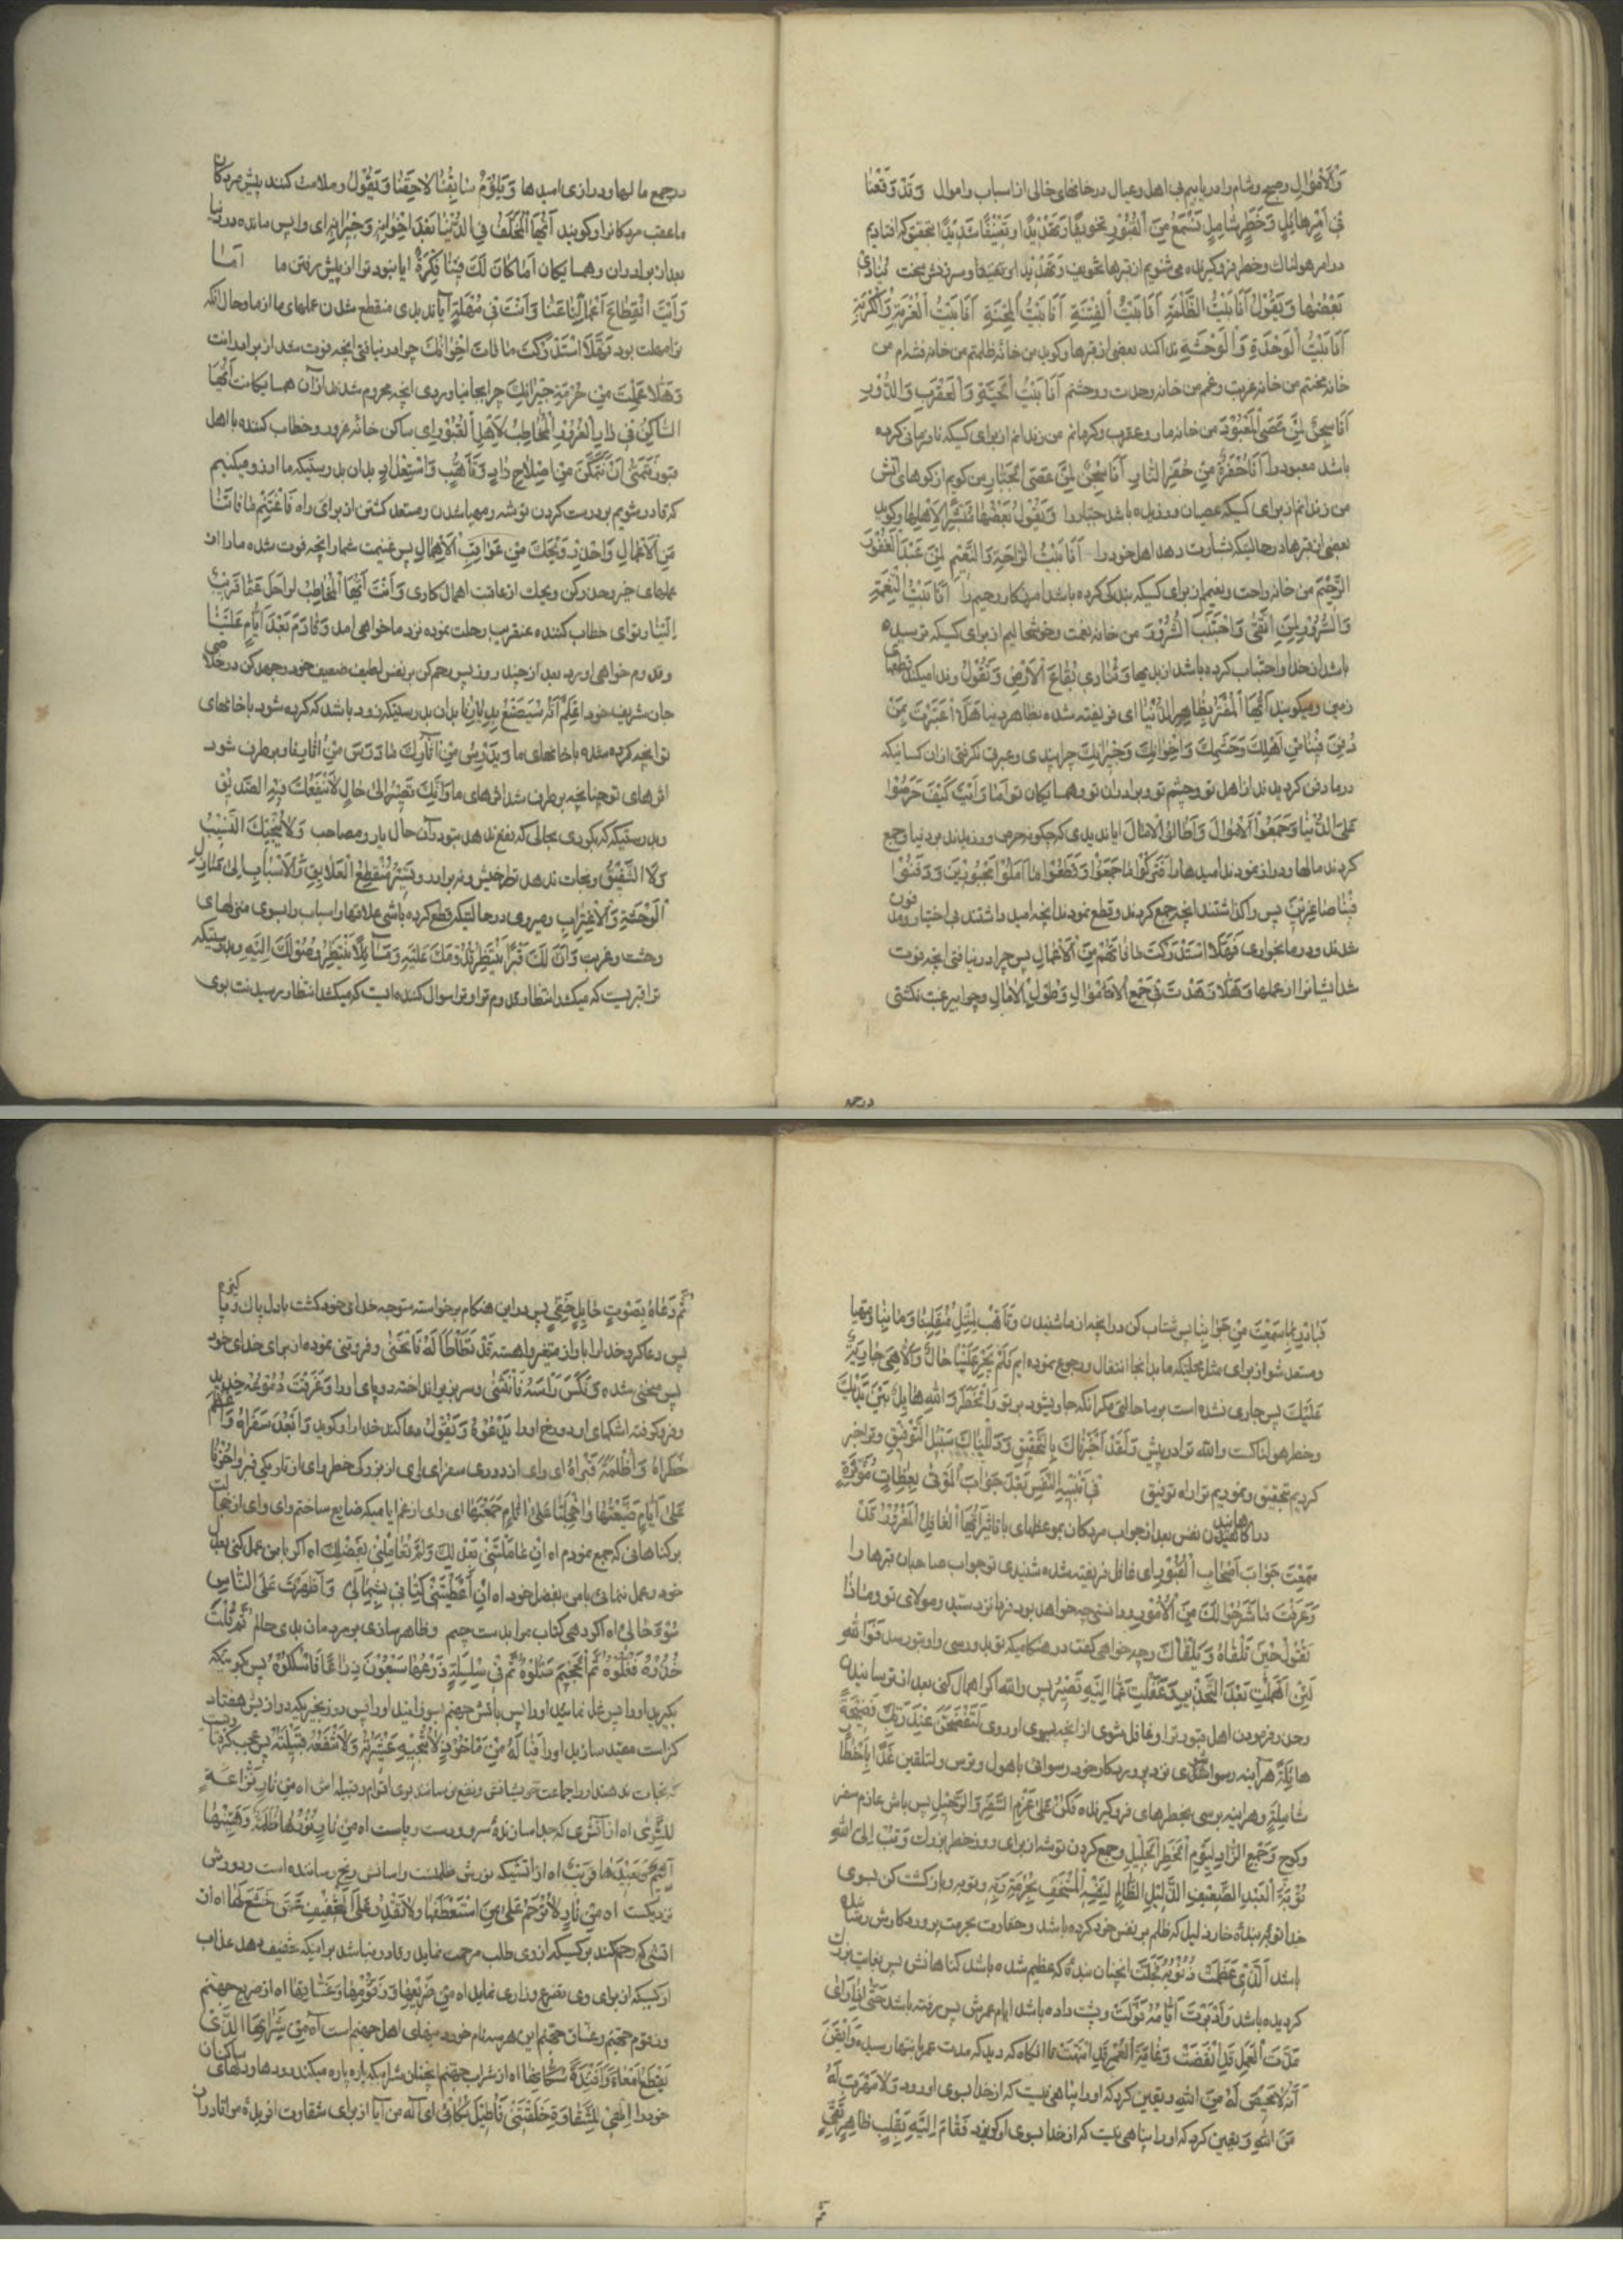 وَالْاَمْوٰالِ وصبح وشام را دریابیم بی اهل وعیال در خانهای خالی از اسباب واموال وَقَدْ وَقَعْنٰا
فی اَمْرٍ هٰائِلٍ وَخَطَرٍ شٰامِلٍ نَسْمَعُ مِنَ الْقُبُوْرِ تَخویفًا وَتَهْدیْدًا وَتَعْنیْفًا شَدیْدًا بتحقیق که افتادیم
در امر هولناك وخطر فروکیرنده می شنویم از قبرها تخویف وتهدید و سرزنش سخت یُنٰادی
بَعْضُهٰا وَیَقُوْلُ اَنَا بَیْتُ الظُّلْمَةِ اَنَا بَیْتُ الْفِتْنَةِ اَنَا بَیْتُ الْمِحْنَةِ اَنَا بَیْتُ الْغُرْبَةِ وَالْکُرْبَةِ
اَنَا بَیْتُ الْوَحْدَةِ وَالْوَحْشَةِ ندا کند بعضی از قبرها وکوید من خانهٔ ظلمتم من خانه فتنه ام من
خانه محنتم من خانه غربت وغمم من خانه وحدت ووحشتم اَنَا بَیْتُ الْحَیَّةِ وَالْعَقْرَبِ وَالدُّوْدِ
اَنَا سِجْنٌ لِمَنْ عَصَی الْمَعْبُوْدَ من خانه مار وعقرب وکرمانم من زندانم از برای کسیکه نافرمانی کرده
باشد معبود را اَنَا حُفْرَةٌ مِنْ حُفَرِ النّٰارِ اَنَا سِجْنٌ لِمَنْ عَصَی الْجَبّٰارَ من کویم از کوهای آتش
من زندانم از برای کسیکه عصیان ورزیده باشد جبار را وَیَقُوْلُ بَعْضُهٰا مُبَشِّرًا لِاَهْلِهٰا وکوید
بعضی از قبرها در حالتیکه بشارت دهد اهل خود را اَنَا بَیْتُ الرّٰاحَةِ وَالنَّعیْمِ لِمَنْ عَبَدَ الْغَفُوْرَ
الرَّحیْمَ من خانه راحت ونعیمم از برای کسیکه بندکی کرده باشد امرزکار رحیم را اَنَا بَیْتُ النِّعْمَةِ
وَالسُّرُوْرِ لِمَنِ اتَّقٰی وَاجْتَنَبَ الشُّرُوْرَ من خانه نعمت وخوشحالیم از برای کسیکه ترسیده
باشد از خدا واجتناب کرده باشد از بدیها وَتُنٰادی بُقٰاعُ الْاَرْضِ وَتَقُوْلُ وندا میکند بقعهای
زمین ومیکویند اَیُّهَا الْمُغْتَرُّ بِظٰاهِرِ الدُّنْیٰا ای فریفته شده بظاهر دنیا هَلَّا اعْتَبَرْتَ بِمَنْ
دُفِنَ فیْنٰا مِنْ اَهْلِكَ وَحَشَمِكَ وَاِخْوٰانِكَ وَجیْرٰانِكَ چرا پندی وعبرت نکرفتی از ان کسانیکه
در ما دفن کردیدند از اهل تو وحشم تو وبرادران تو وهمسایکان تو اَمٰا رَاَیْتَ کَیْفَ حَرَصُوْا
عَلَی الدُّنْیٰا وَجَمَعُوا الْاَمْوٰالَ وَاَطٰالُوا الْاٰمٰالَ ایا ندیدی که چکونه حرص ورزیدند بر دنیا وجمع
کردند مالها ودراز نمودند امیدها را فَتَرَکُوْا مٰا جَمَعُوْا وَقَطَعُوْا مٰا اَمَلُوْا مَجْبُوْریْنَ وَدُفِنُوْا
فیْنٰا صٰاغِریْنَ پس واکذاشتند انچه جمع کردند وقطع نمودند انچه امید داشتند بی اختیار ومدفون
شدند در ما بخواری فَهَلَّا اسْتَدْرَکْتَ مٰا فٰاتَهُمْ مِنَ الْاَعْمٰالِ پس چرا در نیافتی انچه فوت
شد ایشانرا از عملها وَهَلَّا زَهَدْتَ فی جَمْعِ الْاَمْوٰالِ وَطُوْلِ الْاٰمٰالِ وچرا بی رغبت نکشتی
در جمع
در جمع مالها ودرازی امیدها وَیَلُوْمُ سٰابِقُنٰا لٰاحِقَنٰا وَیَقُوْلُ وملامت کنند پیش مردکان
ما عقب مردکانرا وکویند اَیُّهَا الْمُخَلَّفُ فِی الدُّنْیٰا بَعْدَ اِخْوٰانِهِ وَجیْرٰانِهِ ای واپس مانده در دنیا
بعد از برادران وهمسایکان اَمٰا کٰانَ لَكَ فیْنٰا فِکْرَةٌ ایا نبود ترا از پیش رفتن ما اَمٰا
رَاَیْتَ انْقِطٰاعَ اَعْمٰالِنٰا عَنّٰا وَاَنْتَ فی مُهْلَةٍ آیا ندیدی منقطع شدن عملهای ما از ما وحال آنکه
ترا مهلت بود فَهَلَّا اسْتَدْرَکْتَ مٰا فٰاتَ اِخْوٰانَكَ چرا در نیافتی انچه فوت شد از برادرانت
وَهَلَّا عَمِلْتَ مِنْ حُرْمَةِ جیْرٰانِكَ چرا بجا نیاوردی انچه محروم شدند از آن همسایکانت اَیُّهَا
السّٰاکِنُ فی دٰارِ الْغُرُوْرِ الْمُخٰاطِبُ لِاَهْلِ الْقُبُوْرِ ای ساکن خانهٔ غرور وخطاب کننده با اهل
قبور نَتَمَنّٰی اَنْ نَتَمَکَّنَ مِنْ اِصْلٰاحِ زٰادٍ وَتَاَهُّبٍ وَاسْتِعْدٰادٍ بدان بدرستیکه ما ارزو میکنیم
که قادر شویم بر درست کردن توشه ومهیا شدن ومستعد کشتن از برای راه فَاغْتَنِمْ مٰا فٰاتَنٰا
مِنَ الْاَعْمٰالِ وَاحْذَرْ وَیْحَكَ مِنْ عَوٰاقِبِ الْاِهْمٰالِ پس غنیمت شمار انچه فوت شده ما را از
عملهای خیر وحذر کن ویحك از عاقبت اهمال کاری وَاَنْتَ اَیُّهَا الْمُخٰاطِبُ لَرٰاحِلٌ عَمّٰا قَریْبٍ
اِلَیْنٰا وتو ای خطاب کننده عنقریب رحلت نموده نزد ما خواهی امد وَقٰادِمٌ بَعْدَ اَیّٰامٍ عَلَیْنٰا
وقدوم خواهی اورد بعد از چند روز پس رحم کن بر نفس لطیف ضعیف خود وجهد کن در خلاصی
جان شریف خود اِعْلَمْ اَنَّهُ سَیُصْنَعُ بِدِیٰارِنٰا بدان بدرستیکه زود باشد که کرده شود با خانهای
تو انچه کرده شده با خانهای ما وَیَدْرُسُ مِنْ اٰثٰارِكَ مٰا دَرَسَ مِنْ اٰثٰارِنٰا وبرطرف شود
اثرهای تو چنانچه برطرف شد اثرهای ما وَاَنَّكَ تَصیْرُ اِلٰی حٰالٍ لٰا یَنْفَعُكَ فیْهِ الصَّدیْقُ
وبدرستیکه که میکردی بحالی که نفع ندهد بتو در آن حال یار ومصاحب وَلٰا یُنْجیْكَ النَّسیْبُ
وَلَا الشَّفیْقُ ونجات ندهد ترا خویش ونه برادر وَتَسیْرُ مُنْقَطِعَ الْعَلٰائِقِ وَالْاَسْبٰابِ اِلٰی مَنٰازِلِ
الْوَحْشَةِ وَالْاِغْتِرٰابِ ومیروی در حالتیکه قطع کرده باشی علاقها واسباب را بسوی منزلهای
وحشت وغربت وَاَنَّ لَكَ قَبْرًا یَنْتَظِرُ قُدُوْمَكَ عَلَیْهِ وَمَسٰائِلًا یَنْتَظِرُ وُصُوْلَكَ اِلَیْهِ وبدرستیکه
ترا قبریست که میکشد انتظار قدوم ترا وترا سوال کننده ایست که میکشد انتظار رسیدنت بوی
فَبٰادِرْ بِمٰا سَمِعْتَ مِنْ جَوٰابِنٰا پس شتاب کن در انچه از ما شنیدی وَتَاَهَّبْ لِمِثْلِ مُنْقَلَبِنٰا وَمَاٰبِنٰا ومهیا
ومستعد شو از برای مثل محلیکه ما بدانجا انتقال ورجوع نموده ایم فَلَمْ یَجْرِ عَلَیْنٰا حٰالٌ وَاِلَّا هِیَ جٰارِیَةٌ
عَلَیْكَ پس جاری نشده است بر ما حالتی مکر آنکه جاری شود بر تو وَالْخَطَرُ وَاللهِ هٰائِلٌ بَیْنَ یَدَیْكَ
وخطر هولناکست والله ترا در پیش وَلَقَدْ اَخْبَرْنٰاكَ بِالتَّحْقیْقِ وَدَلَلْنٰاكَ سَبیْلَ التَّوْفیْقِ وترا خبر
کردیم بتحقیق ونمودیم ترا راه توفیق فی تَنْبیْهِ النَّفْسِ بَعْدَ جَوٰابِ الْمَوْتٰی بِعِظٰاتٍ مُؤَثِّرَةٍ
در آکاهانیدن نفس بعد از جواب مردکان بموعظهای با تاثیر اَیُّهَا الْغٰافِلُ الْمَغْرُوْرُ قَدْ
سَمِعْتَ جَوٰابَ اَصْحٰابِ الْقُبُوْرِ ای غافل فریفته شده شنیدی تو جواب صاحبان قبرها را
وَعَرَفْتَ مٰا شَرَحُوْا لَكَ مِنَ الْاُمُوْرِ ودانستی چه خواهد بود فردا نزد سید ومولای تو وَمٰاذٰا
تَقُوْلُ حیْنَ تَلْقٰاهُ وَیَلْقٰاكَ وچه خواهی کفت در هنکامیکه تو بدو رسی واو بتو رسد فَوَاللهِ
لَئِنْ اَهْمَلْتِ بَعْدَ التَّحْذیْرِ وَغَفَلْتِ عَمّٰا اِلَیْهِ تَصیْرُ پس والله اکر اهمال کنی بعد از ترسانیدن
وحذر فرمودن اهل قبور ترا وغافل شوی از انچه بسوی او روی لَتَفْتَضِحَنَّ عِنْدَ رَبِّكَ فَضیْحَةً
هٰائِلَةً هرآینه رسوا شوی نزد پروردکار خود رسوائی باهول وترس وَلَتَلْقَیَنَّ غَدًا اَخْطٰارًا
شٰامِلَةً وهراینه برسی بخطرهای فروکیرنده فَکُنْ عَلٰی عَزْمِ السَّفَرِ وَالرَّحیْلِ پس باش عازم سفر
وکوچ وَجَمْعِ الزّٰادِ لِیَوْمِ الْخَطَرِ الْجَلیْلِ وجمع کردن توشه از برای روز خطر بزرك وَتُبْ اِلَی اللهِ
تَوْبَةَ الْعَبْدِ الضَّعیْفِ الذَّلیْلِ الظّٰالِمِ لِنَفْسِهِ الْمُسْتَخِفِّ بِحُرْمَةِ رَبِّهِ وتوبه وبازکشت کن بسوی
خدا توبهٔ بندهٔ خار ذلیل که ظلم بر نفس خود کرده باشد وحقارت بحرمت پروردکارش رسانده
باشد اَلَّذی عَظُمَتْ ذُنُوْبُهُ فَجَلَّتْ انچنان بندهٔ که عظیم شده باشد کناهانش پس بغایت بزرك
کردیده باشد وَاَدْبَرَتْ اَیّٰامُهُ فَوَلَّتْ وپشت داده باشد ایام عمرش پس رفته باشد حَتّٰی اِذٰا رَاٰی
مُدَّةَ الْعَمَلِ قَدِ انْقَضَتْ وَغٰایَةَ الْعُمُرِ قَدِ انْتَهَتْ تا انکاه که دید که مدت عمر بانتها رسیده وَاَیْقَنَ
اَنَّهُ لٰا مَحیْصَ لَهُ مِنَ اللهِ ویقین کرد که او را پناهی نیست که از خدا بسوی او رود وَلٰا مَهْرَبَ لَهُ
مِنَ اللهِ ویقین کرد که او را پناهی نیست که از خدا بسوی او کریزد فَقٰامَ اِلَیْهِ بِقَلْبٍ طٰاهِرٍ نَقِیٍّ
ثم
ثُمَّ دَعٰاهُ بِصَوْتٍ حٰائِلٍ خَفِیٍّ پس در این هنکام برخواسته متوجه خدای خود کشت با دل پاك وپاکیزه
پس دعا کرد خدا را باواز متغیر واهسته قَدْ تَطَأْطَأَ لَهُ فَانْحَنٰی وفروتنی نموده از برای خدای خود
پس منحنی شده وَنَکَّسَ رَأْسَهُ فَانْثَنٰی وسر بزیر انداخته دوپای او را وَغَرَّقَتْ دُمُوْعُهُ خَدَّیْهِ
وفرو کرفته اشکهای او دو رخ او را یَدْعُوْهُ وَیَقُوْلُ دعا کند خدا را وکوید وٰابُعْدَ سَفَرٰاهُ وٰاعِظَمَ
خَطَرٰاهُ وٰاظُلْمَةَ قَبْرٰاهُ ای وای از دوری سفر ای وای از بزرکی خطر وای از تاریکی قبر وٰاحُزْنٰا
عَلٰی اَیّٰامٍ ضَیَّعْتُهٰا وٰاخَجْلَتٰا عَلٰی اٰثٰامٍ جَمَعْتُهٰا ای وای از غم ایامیکه ضایع ساختم وای وای از خجالت
بر کناهانی که جمع نمودم اٰهِ اِنْ عٰامَلْتَنی بِعَدْلِكَ وَلَمْ تُعٰامِلْنی بِفَضْلِكَ اه اکر با من عمل کنی بعدل
خود وعمل ننمائی با من بفضل خود اٰهِ اِنْ اَعْطَیْتَنی کِتٰابی بِشِمٰالی وَاَظْهَرْتَ عَلَی النّٰاسِ
سُوْءَ حٰالی اه اکر دهی کتاب مرا بدست چپم وظاهر سازی بر مردمان بدی حالم ثُمَّ قُلْتَ
خُذُوْهُ فَغُلُّوْهُ ثُمَّ الْجَحیْمَ صَلُّوْهُ ثُمَّ فی سِلْسِلَةٍ ذَرْعُهٰا سَبْعُوْنَ ذِرٰاعًا فَاسْلُکُوْهُ پس کوئیکه
بکیرید او را پس غل نمائید او را پس باتش جهنم بسوزانید او را پس در زنجیریکه درازیش هفتاد
کز است مقید سازید او را فَیٰا لَهُ مِنْ مَأْخُوْذٍ لٰا تُنْجیْهِ عَشیْرَتُهُ وَلٰا تَنْفَعُهُ قَبیْلَتُهُ پس عجب کرفتاریست
که نجات ندهند او را جماعت خویشانش ونفع نرسانند بوی اقوام وقبیله اش اٰهِ مِنْ نٰارٍ نَزّٰاعَةٍ
لِلشَّوٰی اه از آتشی که جداسازندهٔ سر ودست وپاست اٰهِ مِنْ نٰارٍ نُوْرُهٰا ظُلْمَةٌ وَهَیِّنُهٰا
اَلیْمٌ وَبَعیْدُهٰا قَریْبٌ اه از اتشیکه نورش ظلمتست واسانش رنج رساننده است ودورش
نزدیکست اٰهِ مِنْ نٰارٍ لٰا تَرْحَمُ عَلٰی مَنِ اسْتَعْطَفَهٰا وَلٰا تَقْدِرُ عَلَی التَّخْفیْفِ عَمَّنْ خَشَعَ لَهٰا اه از
اتشی که رحم نکند بر کسیکه از وی طلب مرحمت نماید وقادر نباشد بر اینکه تخفیف دهد عذاب
از کسیکه از برای وی تضرع وزاری نماید اٰهِ مِنْ ضَریْعِهٰا وَزَقُّوْمِهٰا وَغَسّٰاقِهٰا اه از ضریع جهنم
وزقوم جهنم وغساق جهنم این هر سه نام خوردنیهای اهل جهنم است اٰهِ مِنْ شَرٰابِهَا الَّذی
یُقَطِّعُ اَمْعٰاءَ وَاَفْئِدَةَ سُکّٰانِهٰا اه از شراب جهنم انچنان شرابیکه پاره پاره میکند رودها ودلهای ساکنان
خود را اِلٰهی لِلشَّقٰاوَةِ خَلَقْتَنی فَاُطیْلَ بُکٰائی ای اله من آیا از برای شقاوت افریدهٔ مرا تا دراز